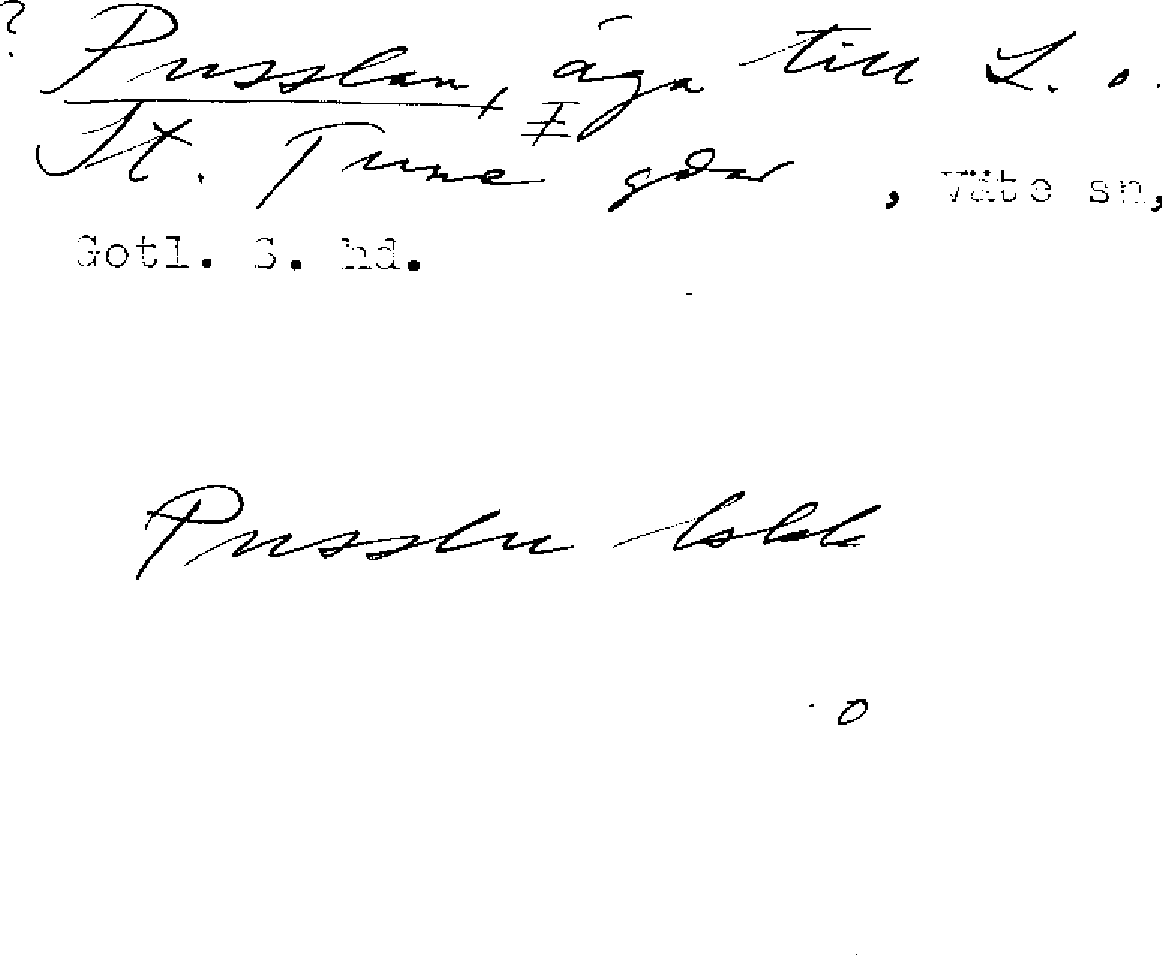 ? Pusslan, äga till L. o.
St. Tune gdar, Väte sn,
Gotl. S. hd.
Pusslu
o